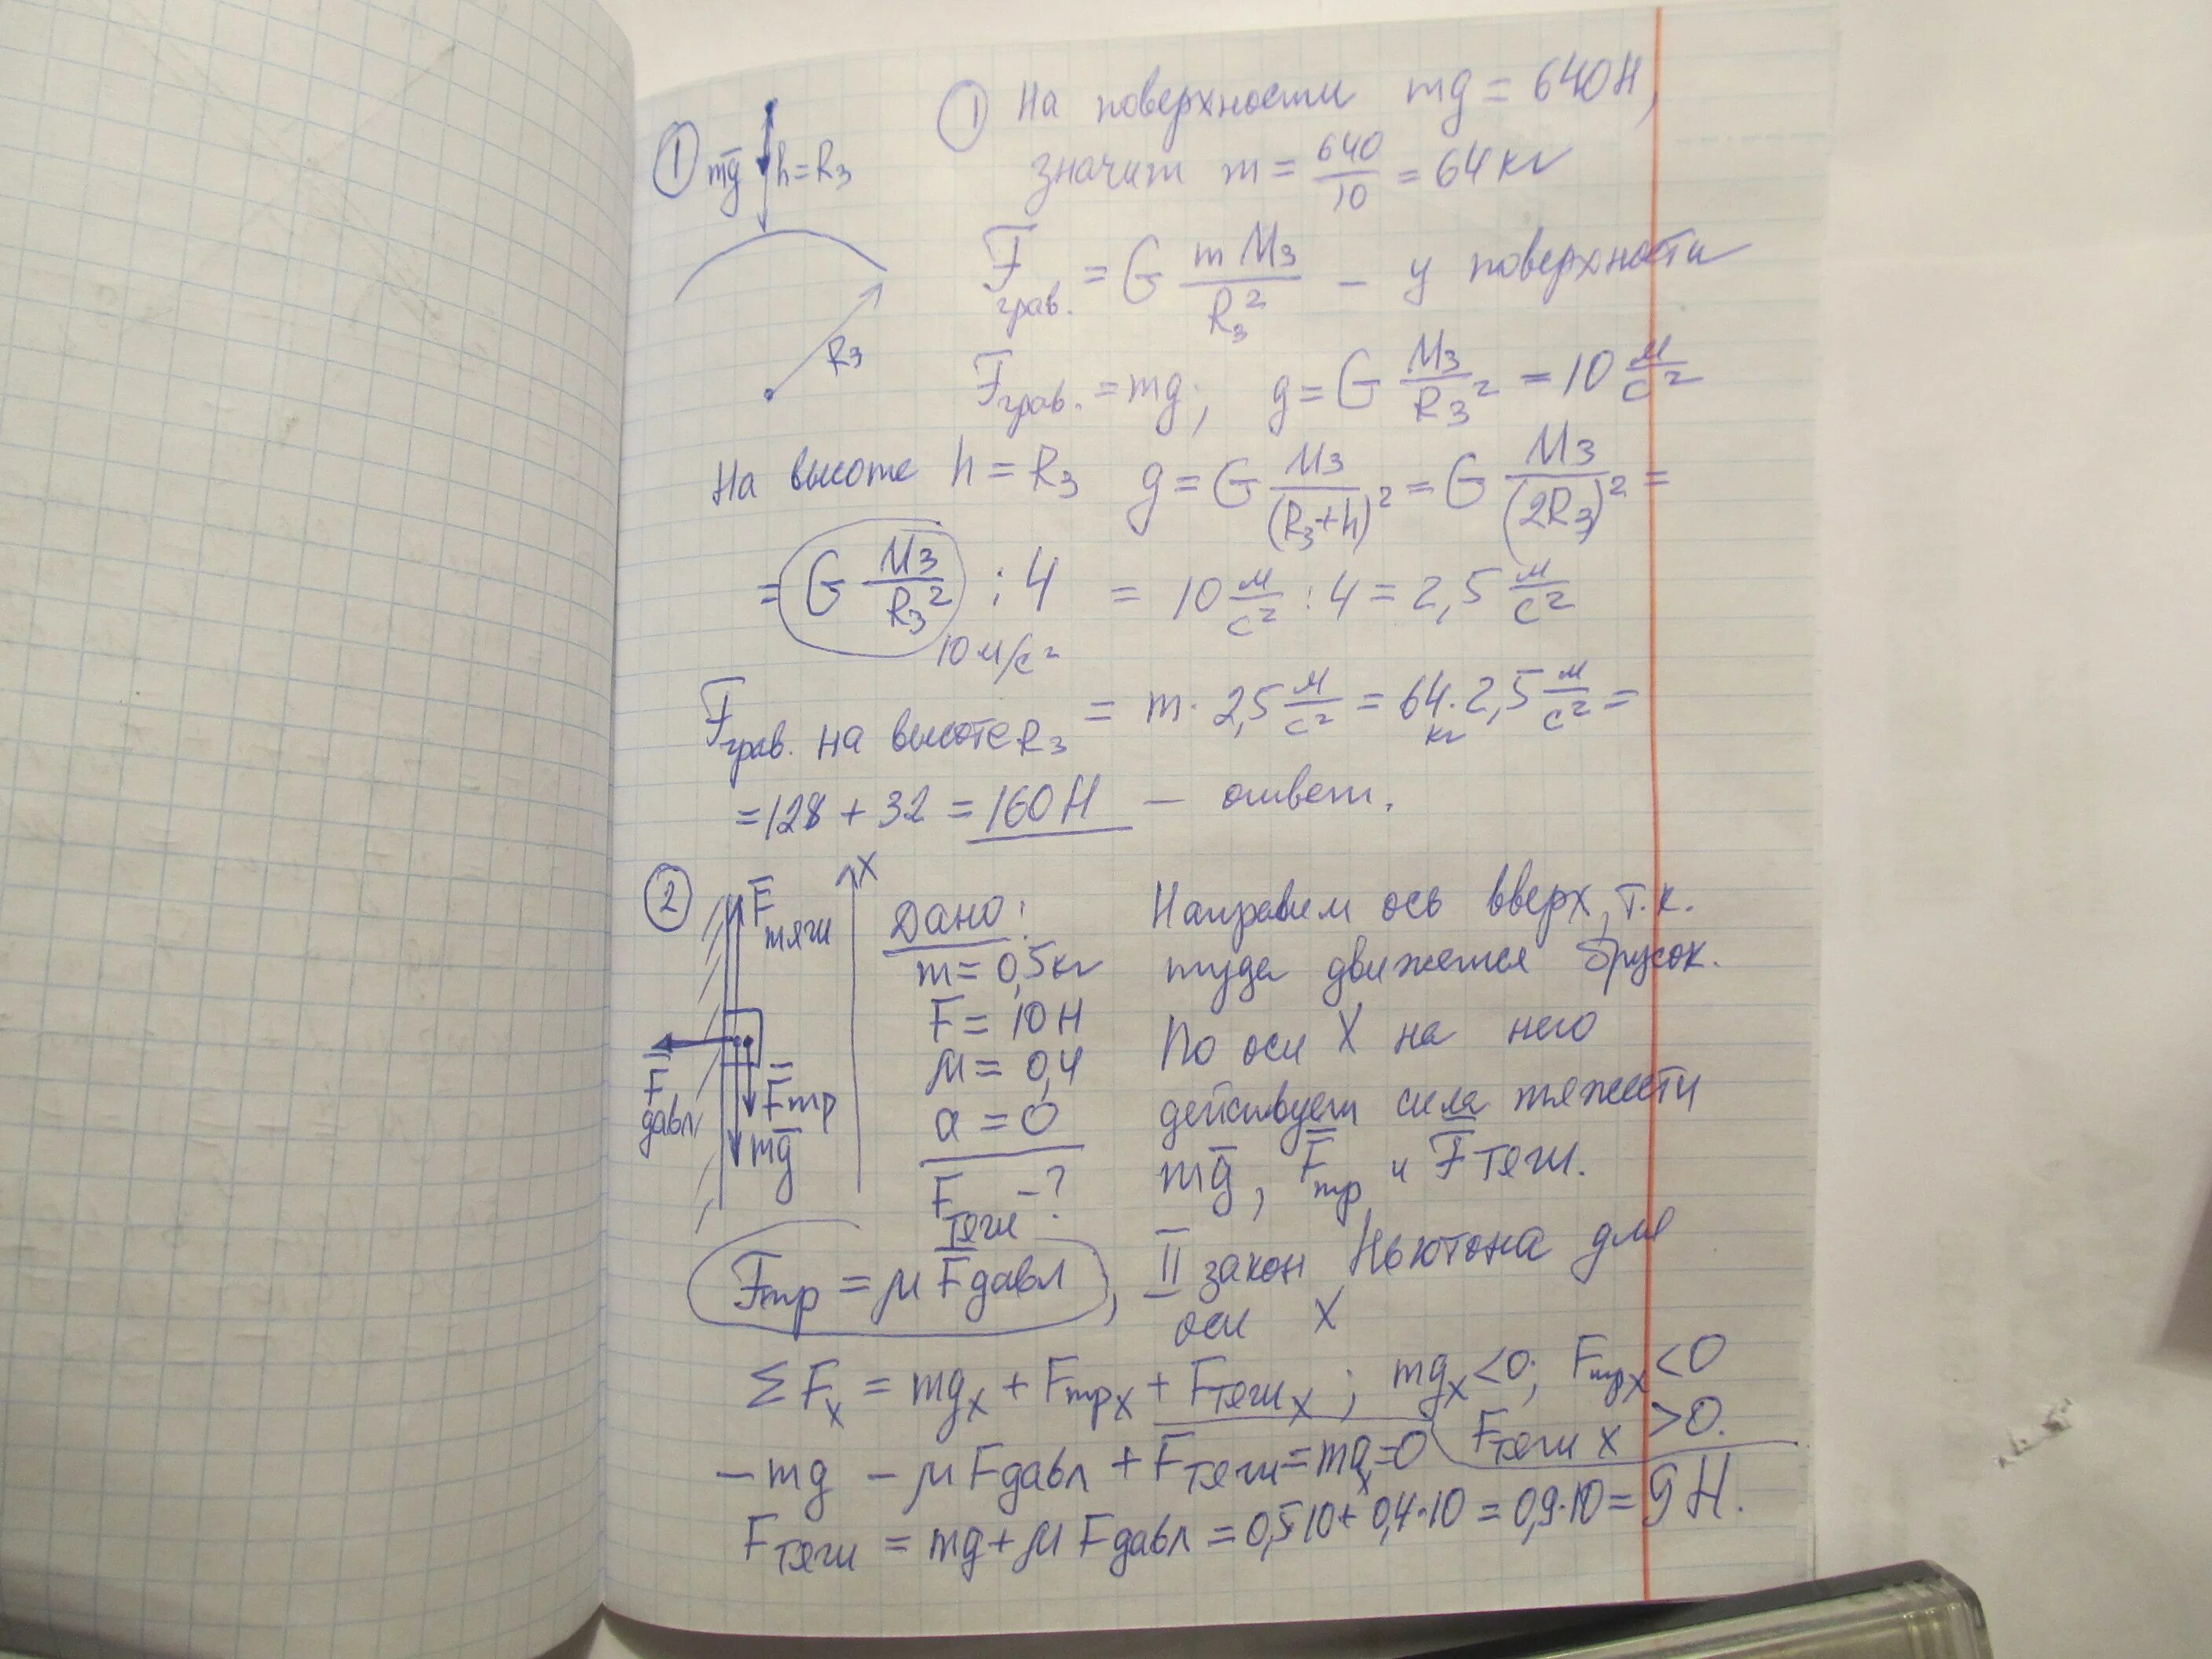 ① mg̅ h = R₃
R₃
① На поверхности mg = 640 Н,
значит m = 640/10 = 64 кг
F̅грав. = G mM₃/R₃² – у поверхности
F̅грав. = mg; g = G M₃/R₃² = 10 м/с²
На высоте h = R₃ g = G M₃/(R₃+h)² = G M₃/(2R₃)² =
= G M₃/R₃² : 4 = 10 м/с² : 4 = 2,5 м/с²
10 м/с²
F̅грав. на высоте R₃ = m · 2,5 м/с² = 64 кг · 2,5 м/с² =
= 128 + 32 = 160 Н – ответ.
② F̅тяги X
F̅давл
F̅тр
mg̅
Дано:
m = 0,5 кг
F = 10 Н
μ = 0,4
a = 0
Fтяги – ?
Направим ось вверх, т.к.
туда движется брусок.
По оси X на него
действуем сила тяжести
mg̅, F̅тр и F̅тяги.
Fтр = μ F̅давл, II закон Ньютона для
оси X
ΣFₓ = mgₓ + Fтрₓ + Fтягиₓ; mgₓ < 0; Fтрₓ < 0
Fтяги x > 0.
– mg – μ Fдавл + Fтяги = maₓ = 0
Fтяги = mg + μ Fдавл = 0,5·10 + 0,4·10 = 0,9·10 = 9 Н.